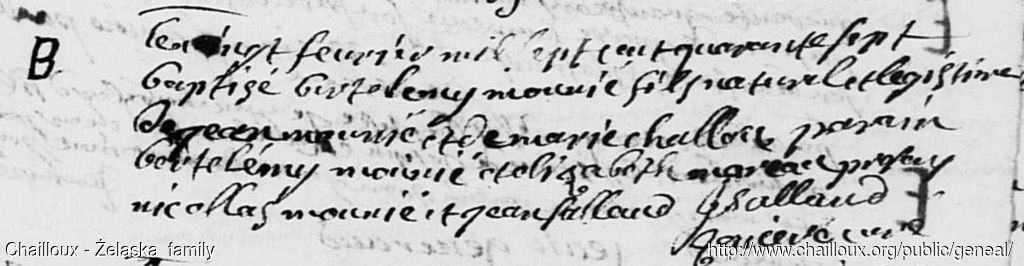 B.
le vingt fevrier mil sept cent quarante sept
baptisé bertelemy mounié fils naturel et legistime
de jean mounié et de marie challou parain
bertelémy mounié et elizabeth moreau presens
nicollas mounié et jean salland J Salland
curé
Chailloux - Żelaska family
http://www.chailloux.org/public/geneal/